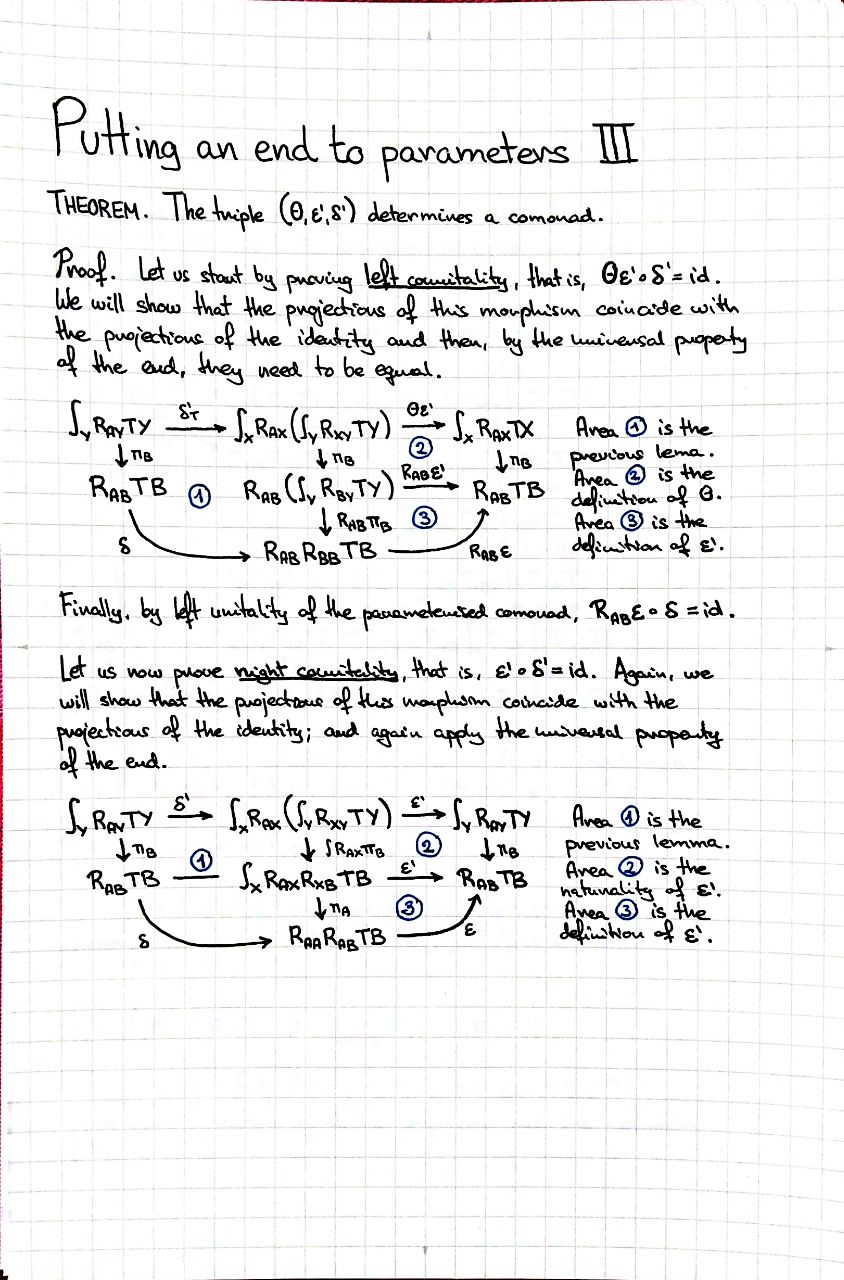 Putting an end to parameters III
THEOREM. The triple (Θ, ε', δ') determines a comonad.
Proof. Let us start by proving left counitality, that is, Θε'∘δ' = id.
We will show that the projections of this morphism coincide with
the projections of the identity and then, by the universal property
of the end, they need to be equal.
∫_Y R_AY TY →^{δ'_T} ∫_X R_AX (∫_Y R_XY TY) →^{Θε'} ∫_X R_AX TX
↓π_B ↓π_B ② ↓π_B
R_AB TB ① R_AB (∫_Y R_BY TY) →^{R_AB ε'} R_AB TB
↓R_AB π_B ③
δ R_AB R_BB TB R_AB ε
Area ① is the
previous lema.
Area ② is the
definition of Θ.
Area ③ is the
definition of ε'.
Finally, by left unitality of the parameterised comonad, R_AB ε ∘ δ = id.
Let us now prove right counitality, that is, ε'∘δ' = id. Again, we
will show that the projections of this morphism coincide with the
projections of the identity; and again apply the universal property
of the end.
∫_Y R_AY TY →^{δ'} ∫_X R_AX (∫_Y R_XY TY) →^{ε'} ∫_Y R_AY TY
↓π_B ① ↓∫R_AX π_B ② ↓π_B
R_AB TB — ∫_X R_AX R_XB TB →^{ε'} R_AB TB
↓π_A ③
δ R_AA R_AB TB ε
Area ① is the
previous lemma.
Area ② is the
naturality of ε'.
Area ③ is the
definition of ε'.